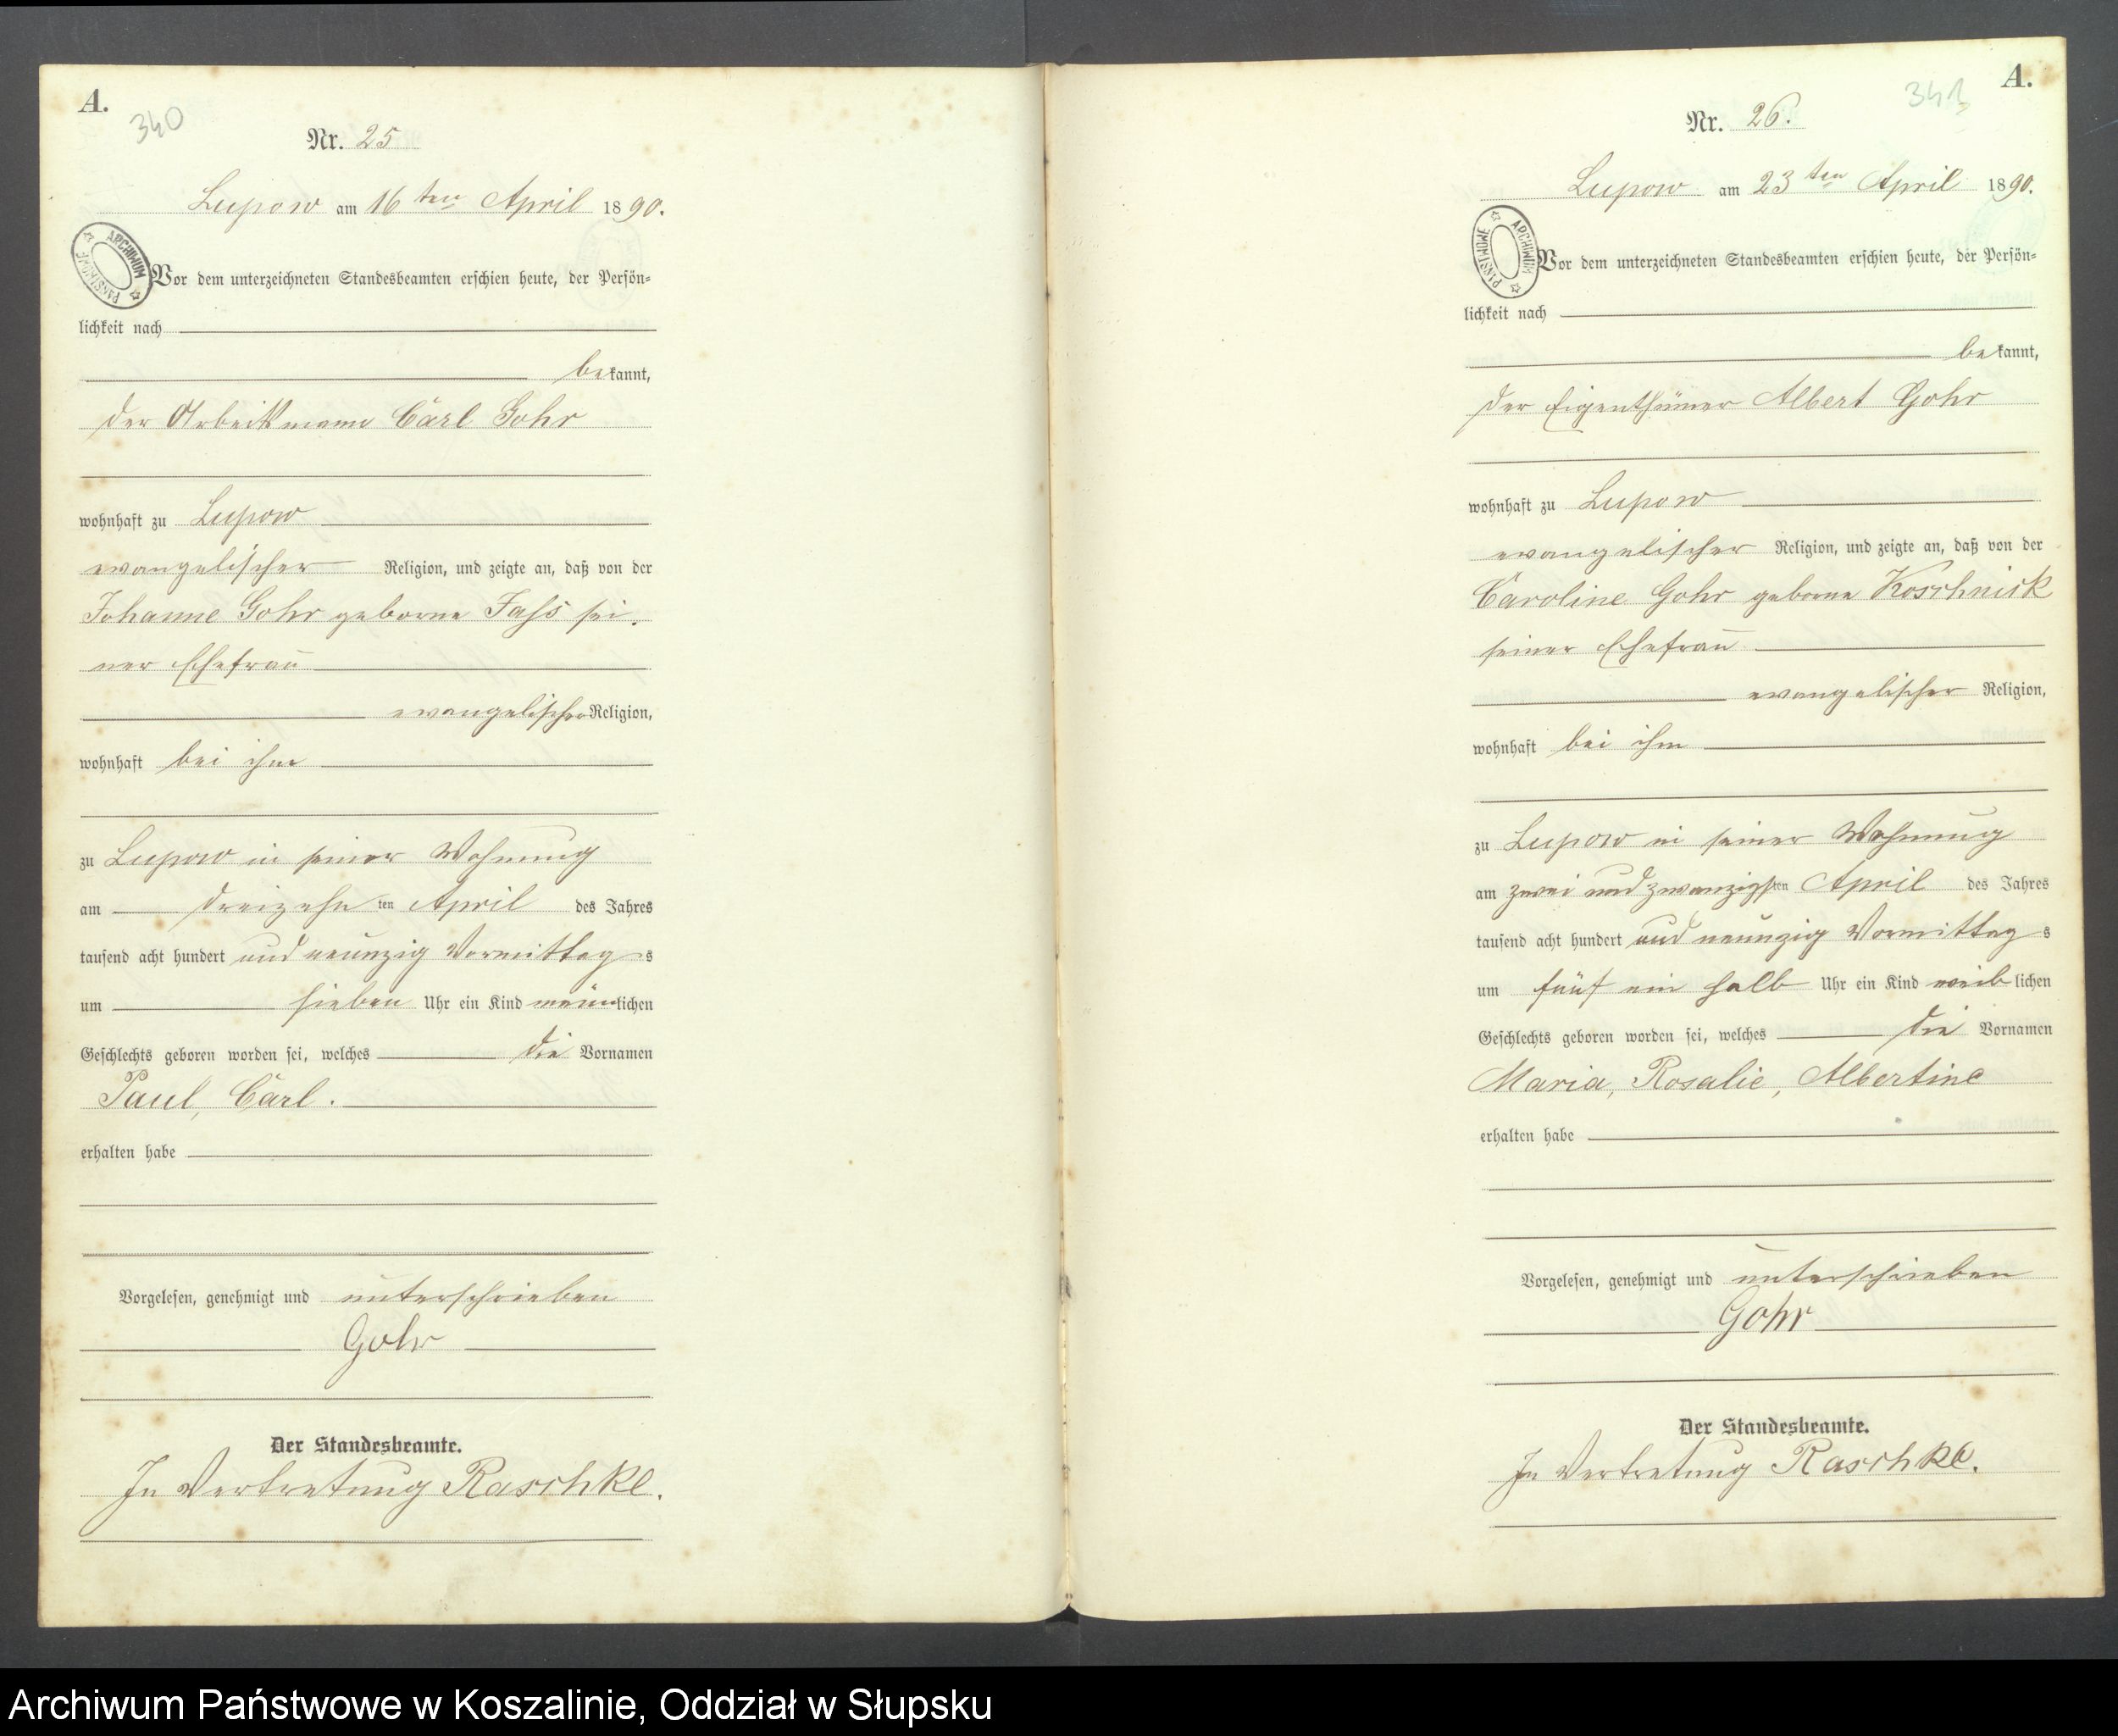 A.
340
Nr. 25
Lupow am 16ten April 1890.
ARCHIWUM PAŃSTWOWE
Vor dem unterzeichneten Standesbeamten erschien heute, der Persön-
lichkeit nach
bekannt,
der Arbeitsmann Carl Gohr
wohnhaft zu Lupow
evangelischer Religion, und zeigte an, daß von der
Johanne Gohr geborne Fahs sei-
ner Ehefrau
evangelischer Religion,
wohnhaft bei ihm
zu Lupow in seiner Wohnung
am dreizehnten April des Jahres
tausend acht hundert und neunzig Vormittags
um sieben Uhr ein Kind männlichen
Geschlechts geboren worden sei, welches die Vornamen
Paul, Carl.
erhalten habe
Vorgelesen, genehmigt und unterschrieben
Gohr
Der Standesbeamte.
In Vertretung Raschke.
A.
341
Nr. 26.
Lupow am 23ten April 1890.
ARCHIWUM PAŃSTWOWE
Vor dem unterzeichneten Standesbeamten erschien heute, der Persön-
lichkeit nach
bekannt,
der Eigenthümer Albert Gohr
wohnhaft zu Lupow
evangelischer Religion, und zeigte an, daß von der
Caroline Gohr geborne Koschnick
seiner Ehefrau
evangelischer Religion,
wohnhaft bei ihm
zu Lupow in seiner Wohnung
am zwei und zwanzigsten April des Jahres
tausend acht hundert und neunzig Vormittags
um fünf ein halb Uhr ein Kind weiblichen
Geschlechts geboren worden sei, welches die Vornamen
Maria, Rosalie, Albertine
erhalten habe
Vorgelesen, genehmigt und unterschrieben
Gohr
Der Standesbeamte.
In Vertretung Raschke.
Archiwum Państwowe w Koszalinie, Oddział w Słupsku